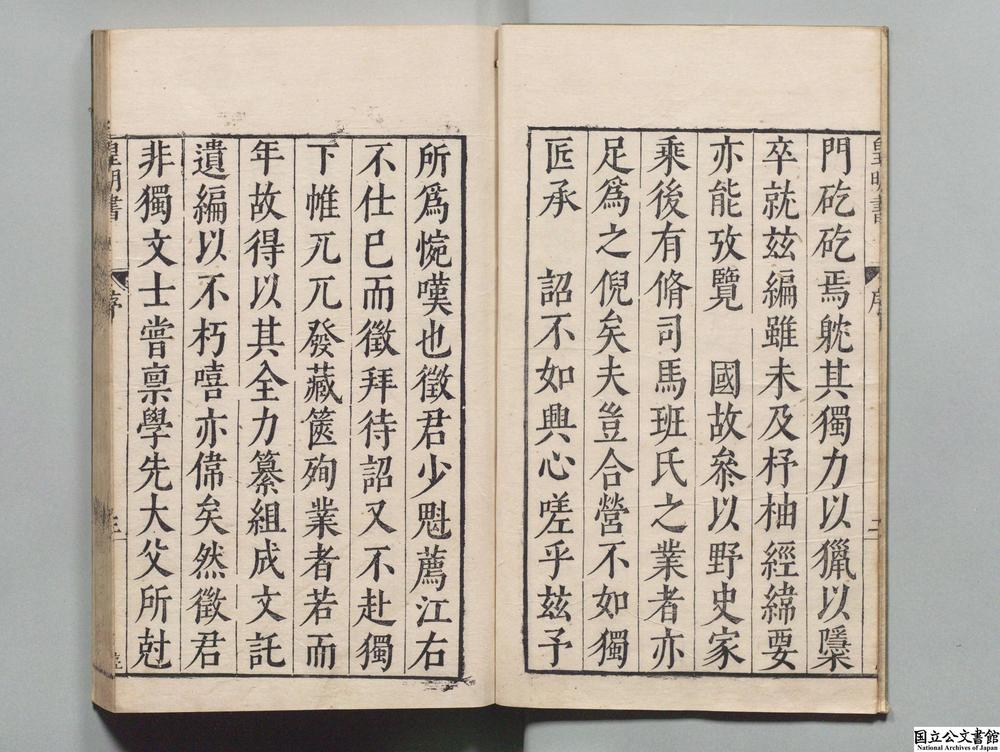 門矻矻焉躭其獨力以獵以隱
卒就兹編雖未及杼柚經緯要
亦能攷覽　國故叅以野史家
乘後有脩司馬班氏之業者亦
足爲之倪矣夫豈合營不如獨
匠承　詔不如興心嗟乎兹予
所爲惋嘆也徵君少魁薦江右
不仕已而徵拜待詔又不赴獨
下帷兀兀發藏篋殉業者若而
年故得以其全力纂組成文託
遺編以不朽嘻亦偉矣然徵君
非獨文士嘗禀學先大父所尅
皇明書
序
二
皇明書
序
三
国立公文書館
National Archives of Japan